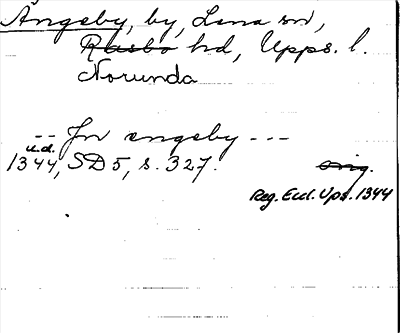 Ängeby, by, Lena sn,
Rasbo hd, Upps. l.
Norunda
-- Jn engeby ---
u.d.
1344, SD 5, s. 327.
orig.
Reg. Eccl. Ups. 1344